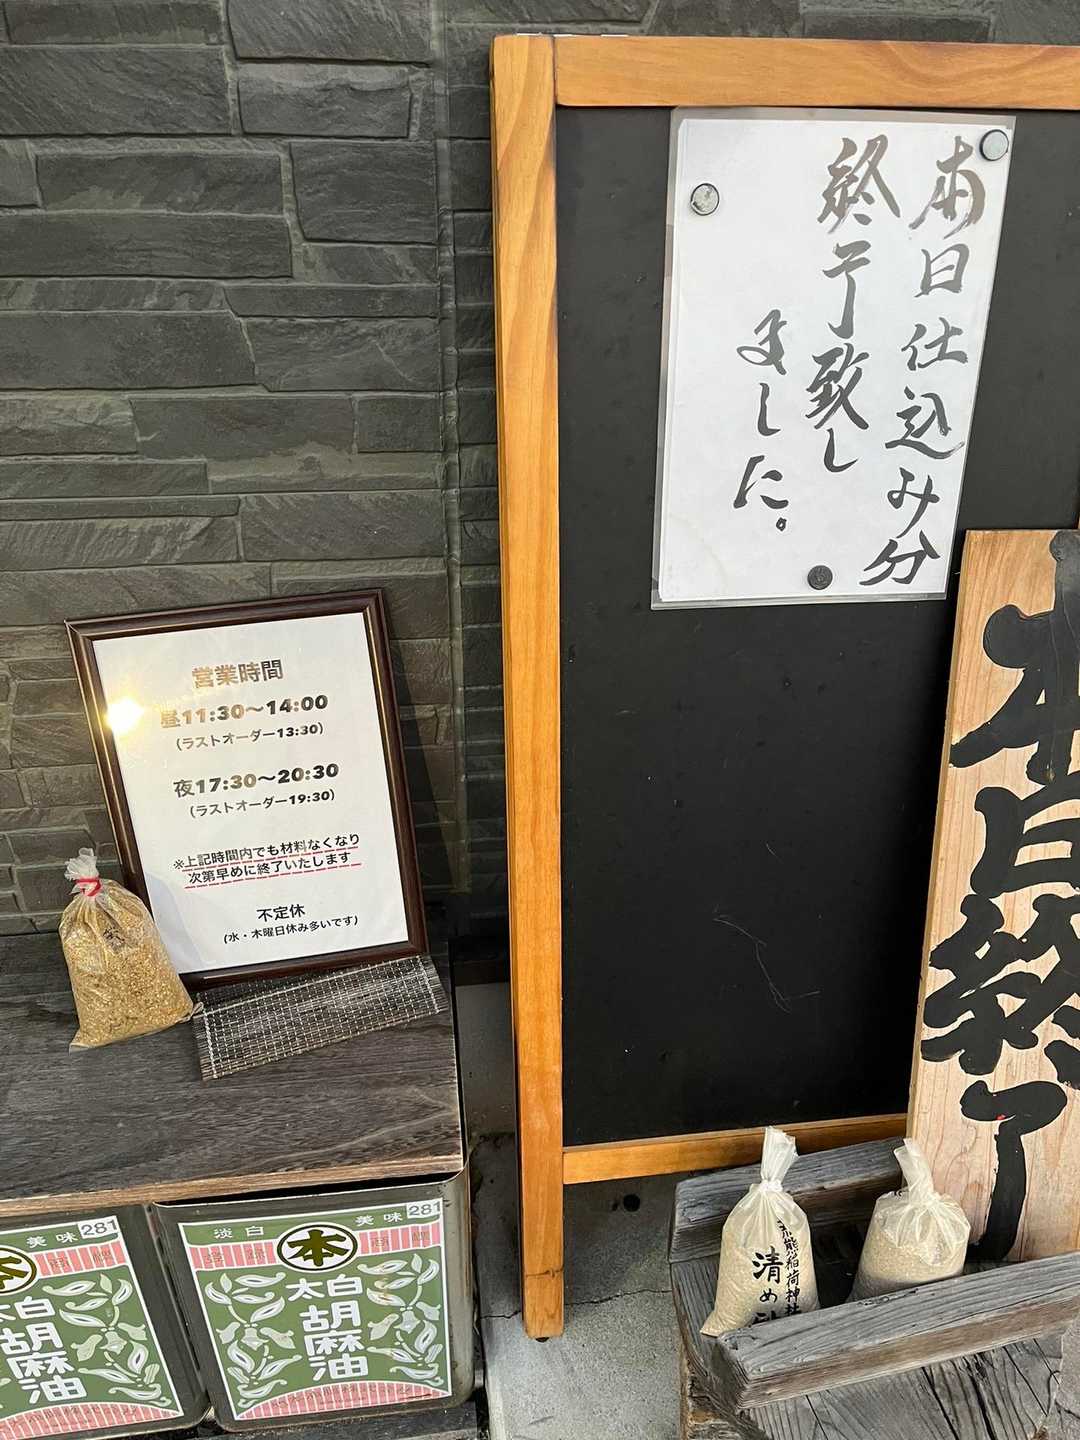 本日仕込み分
終了致し
ました。
営業時間
昼11:30〜14:00
(ラストオーダー13:30)
夜17:30〜20:30
(ラストオーダー19:30)
※上記時間内でも材料なくなり
次第早めに終了いたします
不定休
(水・木曜日休み多いです)
本日終了
熊稲荷神社
清め
美味 281
本
太白
胡麻油
淡白 本 美味 281
太白
胡麻油